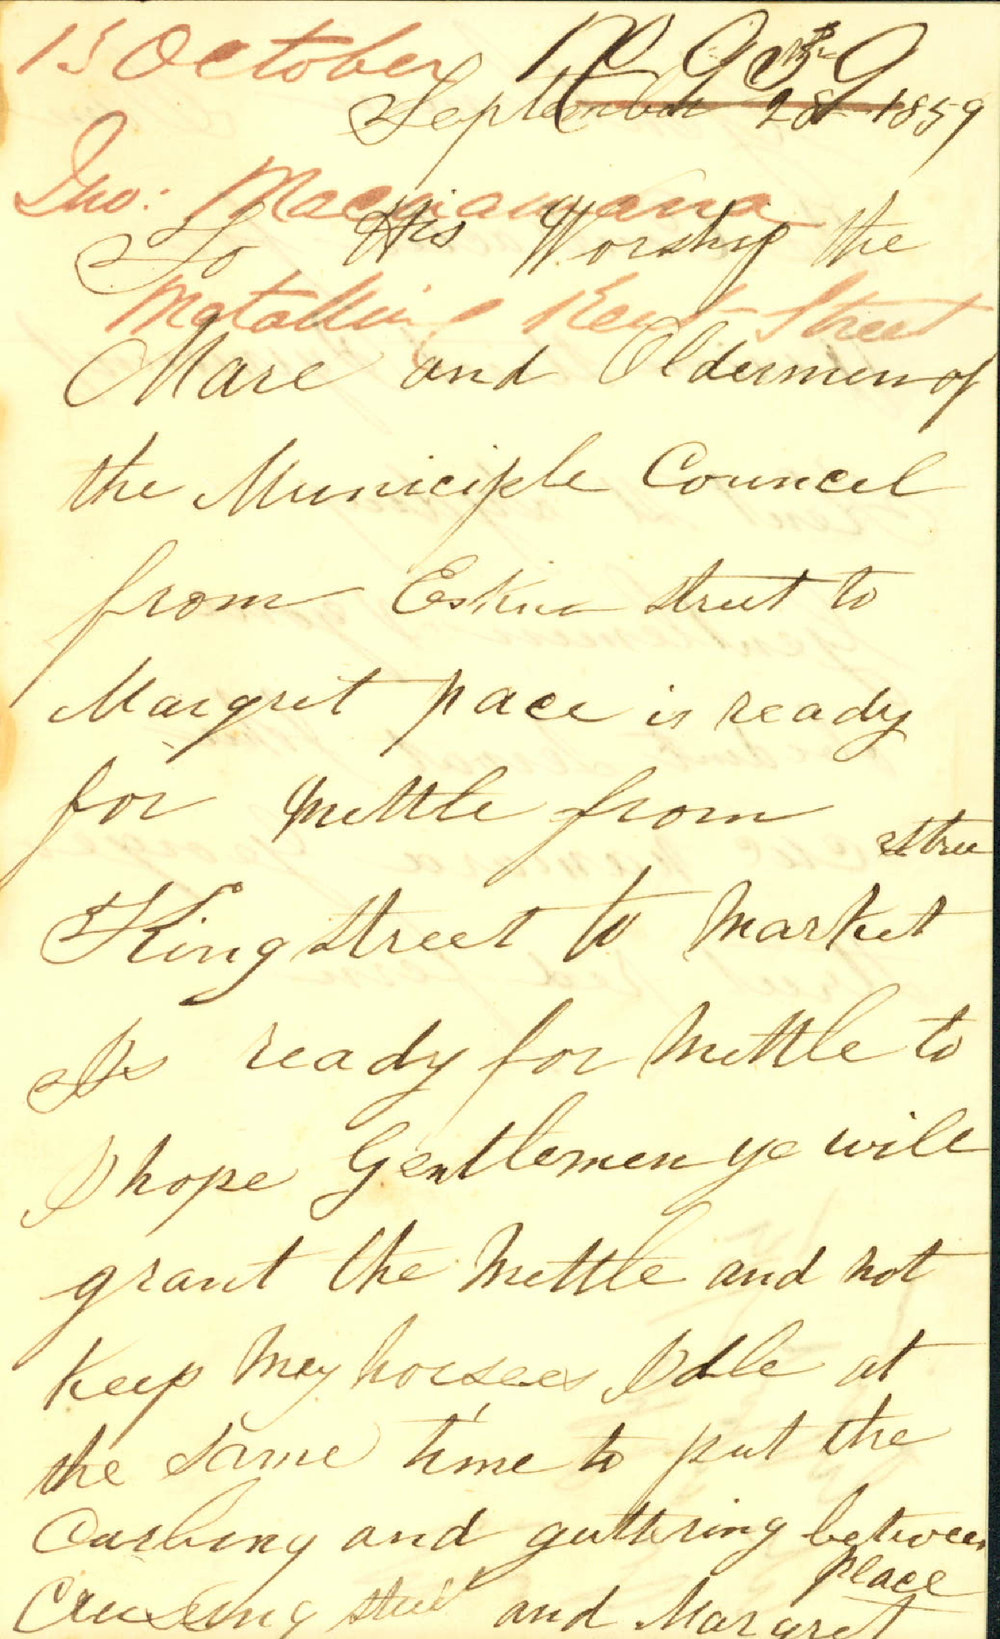 15 October
No 939
September 28 1859
Jno: Macnamara
To His Worship the
Metalling Kent Street
Mare and Oldermen of
the Municiple Council
from Eskine street to
Margret pace is ready
for Mettle from
stree
King street to Market
Is ready for Mettle to
I hope Gentlemen ye will
grant the Mettle and not
Keep My horsees Idle at
the same time to put the
Curbing and guttering between
place
street and Margret